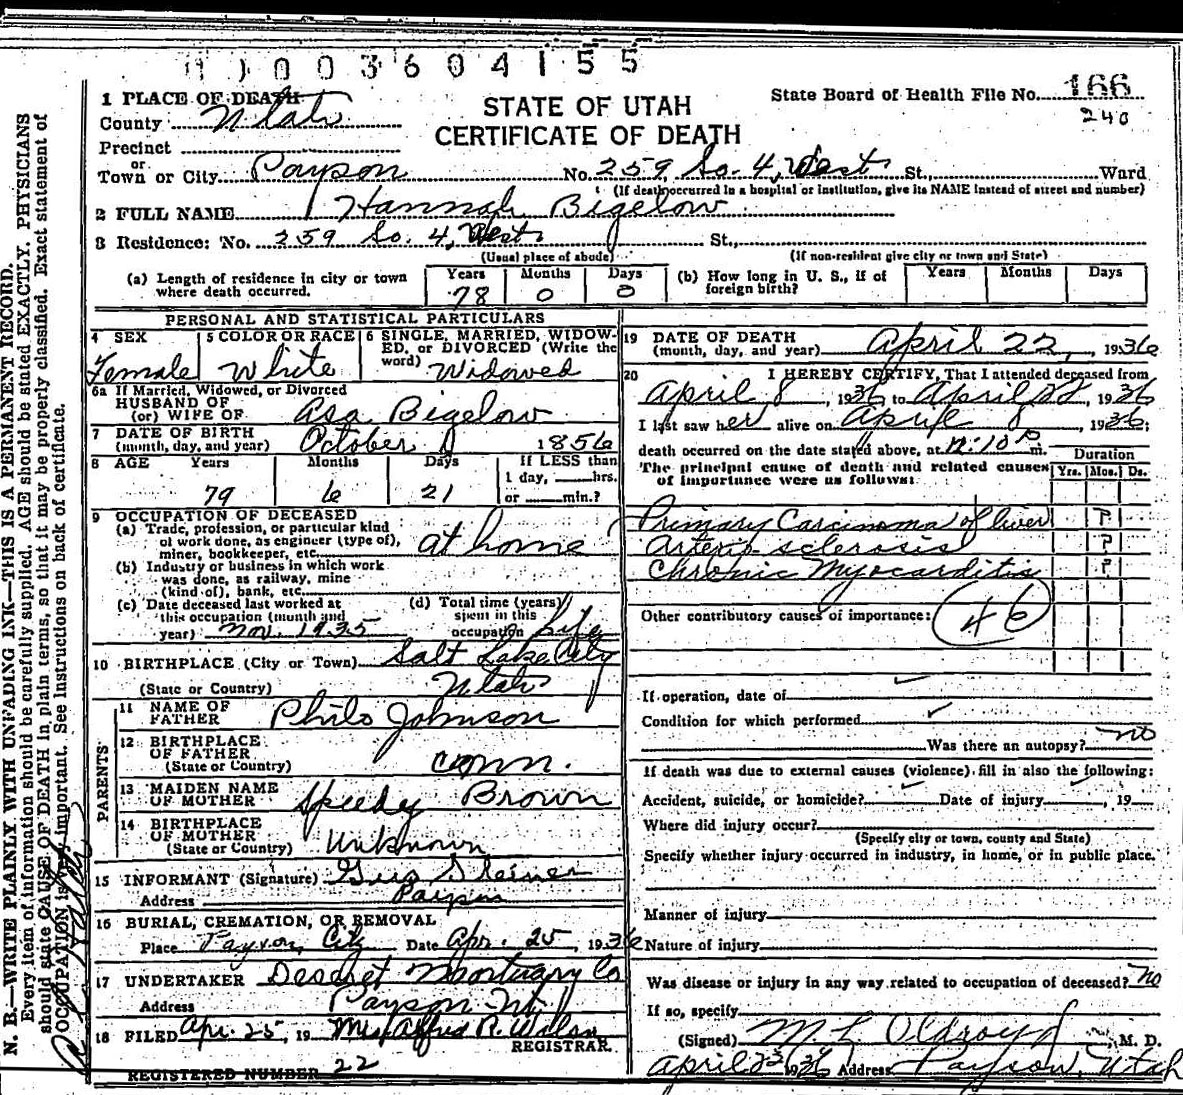 003604155
1 PLACE OF DEATH
County Utah
Precinct
or
Town or City Payson
STATE OF UTAH
CERTIFICATE OF DEATH
State Board of Health File No. 166
240
No. 259 So. 4, West St., Ward
(If death occurred in a hospital or institution, give its NAME instead of street and number)
2 FULL NAME Hannah Bigelow
3 Residence: No. 259 So. 4, West St.,
(Usual place of abode) (If non-resident give city or town and State)
(a) Length of residence in city or town where death occurred. Years 78 Months 0 Days 0
(b) How long in U. S., if of foreign birth? Years Months Days
PERSONAL AND STATISTICAL PARTICULARS
4 SEX Female
5 COLOR OR RACE White
6 SINGLE, MARRIED, WIDOWED, or DIVORCED (Write the word) Widowed
6a If Married, Widowed, or Divorced
HUSBAND OF
(or) WIFE OF Asa Bigelow
7 DATE OF BIRTH
(month, day, and year) October 1 1856
8 AGE Years 79 Months 6 Days 21
If LESS than
1 day, hrs.
or min.?
9 OCCUPATION OF DECEASED
(a) Trade, profession, or particular kind
of work done, as engineer (type of),
miner, bookkeeper, etc. at home
(b) Industry or business in which work
was done, as railway, mine
(kind of), bank, etc.
(c) Date deceased last worked at
this occupation (month and
year) Nov. 1935
(d) Total time (years)
spent in this
occupation Life
10 BIRTHPLACE (City or Town) Salt Lake City
(State or Country) Utah
PARENTS
11 NAME OF
FATHER Philo Johnson
12 BIRTHPLACE
OF FATHER
(State or Country) Conn.
13 MAIDEN NAME
OF MOTHER Speedy Brown
14 BIRTHPLACE
OF MOTHER
(State or Country) Unknown
15 INFORMANT (Signature) Gus Steiner
Address Payson
16 BURIAL, CREMATION, OR REMOVAL
Place Payson City Date Apr. 25, 1936
17 UNDERTAKER Deseret Mortuary Co
Address Payson Ut.
18 FILED Apr. 25, 19 Mrs Alfred R. Wilson
REGISTRAR.
REGISTERED NUMBER 22
19 DATE OF DEATH
(month, day, and year) April 22, 1936
20 I HEREBY CERTIFY, That I attended deceased from
April 8, 1936 to April 22, 1936
I last saw her alive on April 8, 1936;
death occurred on the date stated above, at 12:10 P m.
The principal cause of death and related causes
of importance were as follows:
Duration
Yrs. Mos. Ds.
Primary Carcinoma of liver ?
Arterio-sclerosis ?
Chronic Myocarditis ?
Other contributory causes of importance: 46
If operation, date of
Condition for which performed
Was there an autopsy? no
If death was due to external causes (violence) fill in also the following:
Accident, suicide, or homicide? Date of injury , 19
Where did injury occur?
(Specify city or town, county and State)
Specify whether injury occurred in industry, in home, or in public place.
Manner of injury
Nature of injury
Was disease or injury in any way related to occupation of deceased? No
If so, specify
(Signed) M L Oldroyd, M. D.
April 23 1936 Address Payson, Utah
N. B.—WRITE PLAINLY WITH UNFADING INK—THIS IS A PERMANENT RECORD.
Every item of information should be carefully supplied. AGE should be stated EXACTLY. PHYSICIANS
should state CAUSE OF DEATH in plain terms, so that it may be properly classified. Exact statement of
OCCUPATION is very important. See instructions on back of certificate.